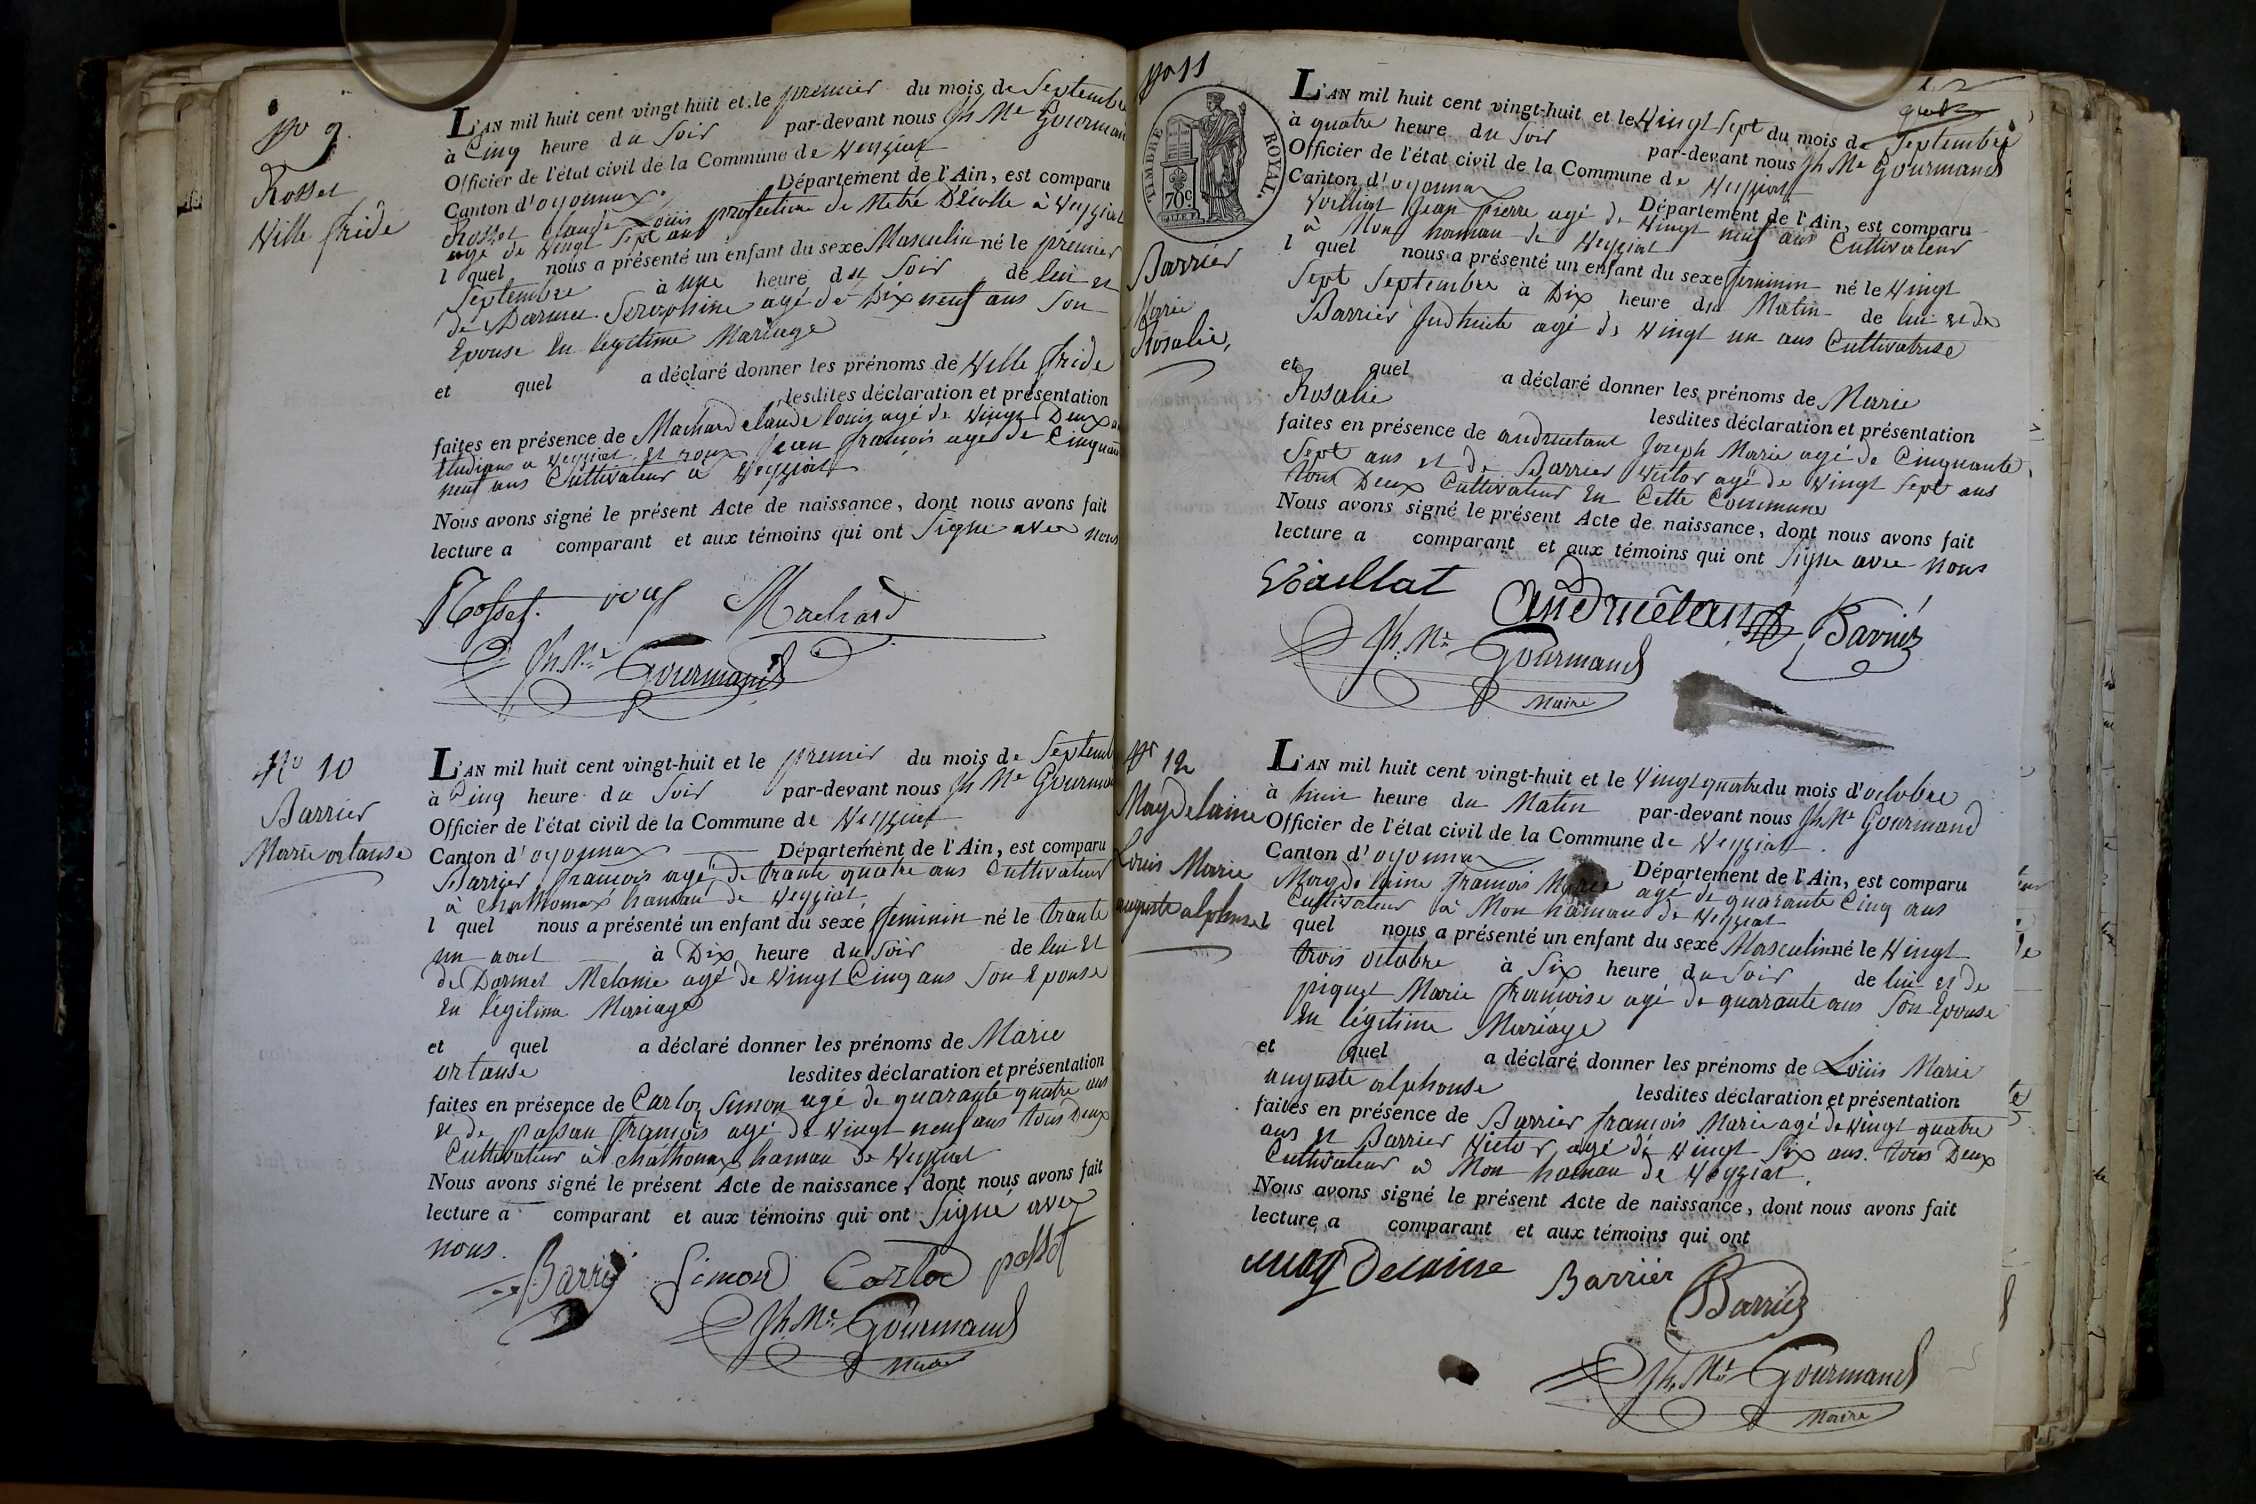 No 9
Rosset
Wille fride
L'AN mil huit cent vingt-huit et le premier du mois de Septembre
à Cinq heure du Soir par-devant nous Jh Me Gourmand
Officier de l'état civil de la Commune de Veyziat
Canton d'oyonnax Département de l'Ain, est comparu
Rosset Claude Louis profection de Metre D'écolle à Veyziat
agé de vingt Sept ans
l quel nous a présenté un enfant du sexe Masculin né le premier
Septembre à une heure du Soir de lui et
de Darmet Serophine agé de Dix neuf ans Son
Epouse En legitime Mariage
et quel a déclaré donner les prénoms de Wille fride
lesdites déclaration et présentation
faites en présence de Machard claude louis agé de vingt Deux ans
Etudians a Veyziat et roux Jean françois agé de Cinquante
neuf ans Cultivateur a Veyziat
Nous avons signé le présent Acte de naissance, dont nous avons fait
lecture a comparant et aux témoins qui ont Signe avec nous
Rosset. roux Machard
Jh Me Gourmand
No 10
Barrier
Marie ortanse
L'AN mil huit cent vingt-huit et le premier du mois de Septemb
à Cinq heure du Soir par-devant nous Jh Me Gourmand
Officier de l'état civil de la Commune de Veyziat
Canton d'oyonnax Département de l'Ain, est comparu
Barrier françois agé de trante quatre ans Cultivateur
à Chathonax hamau de Veyziat
l quel nous a présenté un enfant du sexe feminin né le trante
un aout à Dix heure du Soir de lui et
de Darmet Melanie agé de vingt Cinq ans Son Epouse
En légitime Mariage
et quel a déclaré donner les prénoms de Marie
ortanse lesdites déclaration et présentation
faites en présence de Carloz Simon agé de quarante quatre ans
et de passau françois agé de vingt neuf ans tous Deux
Cultivateur à Chathonax hamau de Veyziat
Nous avons signé le présent Acte de naissance, dont nous avons fait
lecture a comparant et aux témoins qui ont Signé avec
nous.
Barrie Simon Carloz
Jh Me Gourmand
Maire
No 11
TIMBRE ROYAL.
70c
Barrier
Marie
Rosalie,
L'AN mil huit cent vingt-huit et le Vingt Sept du mois de Septembre
à quatre heure du Soir par-devant nous Jh Me Gourmand
Officier de l'état civil de la Commune de Veyziat
Canton d'oyonnax Département de l'Ain, est comparu
Voilliat Jean pierre agé de Vingt neuf ans Cultivateur
à Mons hamau de Veyziat
l quel nous a présenté un enfant du sexe feminin né le Vingt
Sept Septembre à Dix heure du Matin de lui et de
Barrier Judhiite agé de vingt un ans Cultivatrise
et quel a déclaré donner les prénoms de Marie
Rosalie lesdites déclaration et présentation
faites en présence de andruetant Joseph Marie agé de Cinquante
Sept ans et de Barrier Victor agé de vingt Sept ans
tous Deux Cultivateur En Cette Commune
Nous avons signé le présent Acte de naissance, dont nous avons fait
lecture a comparant et aux témoins qui ont Signe avec nous
Vaillat andruétant Barriez
Jh. Me Gourmand
Maire
No 12
Maydelaine
Louis Marie
auguste alphonse
L'AN mil huit cent vingt-huit et le vingt quatre du mois d'octobre
à huit heure du Matin par-devant nous Jh Me Gourmand
Officier de l'état civil de la Commune de Veyziat
Canton d'oyonnax Département de l'Ain, est comparu
Maydelaine françois Marie agé de quarante Cinq ans
Cultivateur à Mon hamau de Veyziat
l quel nous a présenté un enfant du sexe Masculin né le Vingt
trois octobre à Six heure du Soir de lui et de
piquet Marie françoise agé de quarante ans Son Epouse
En légitime Mariage
et quel a déclaré donner les prénoms de Loüis Marie
auguste alphonse lesdites déclaration et présentation
faites en présence de Barrier françois Marie agé de vingt quatre
ans et Barrier Victor agé de vingt Six ans. tous Deux
Cultivateur a Mon hamau de Veyziat.
Nous avons signé le présent Acte de naissance, dont nous avons fait
lecture a comparant et aux témoins qui ont
magdelaine Barrier
Barriez
Jh. Me Gourmand
Maire